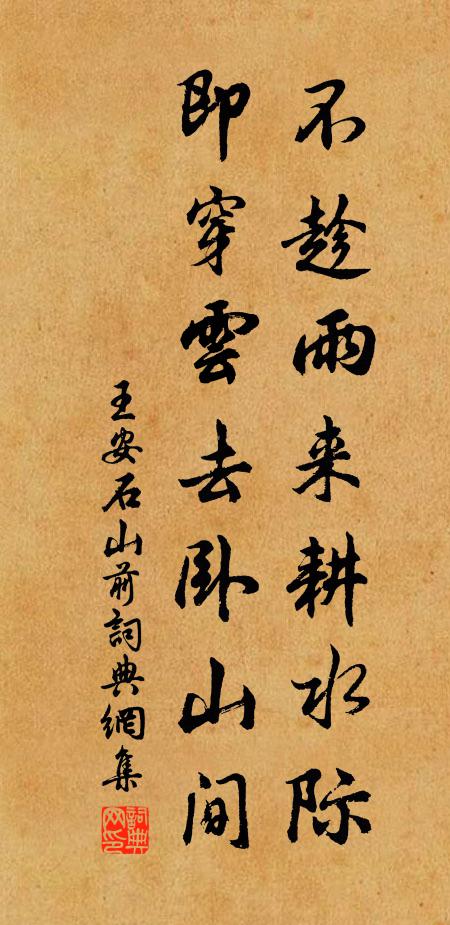 不趁雨来耕水际
即穿雲去卧山间
王安石山前詞典網集
詞典網印